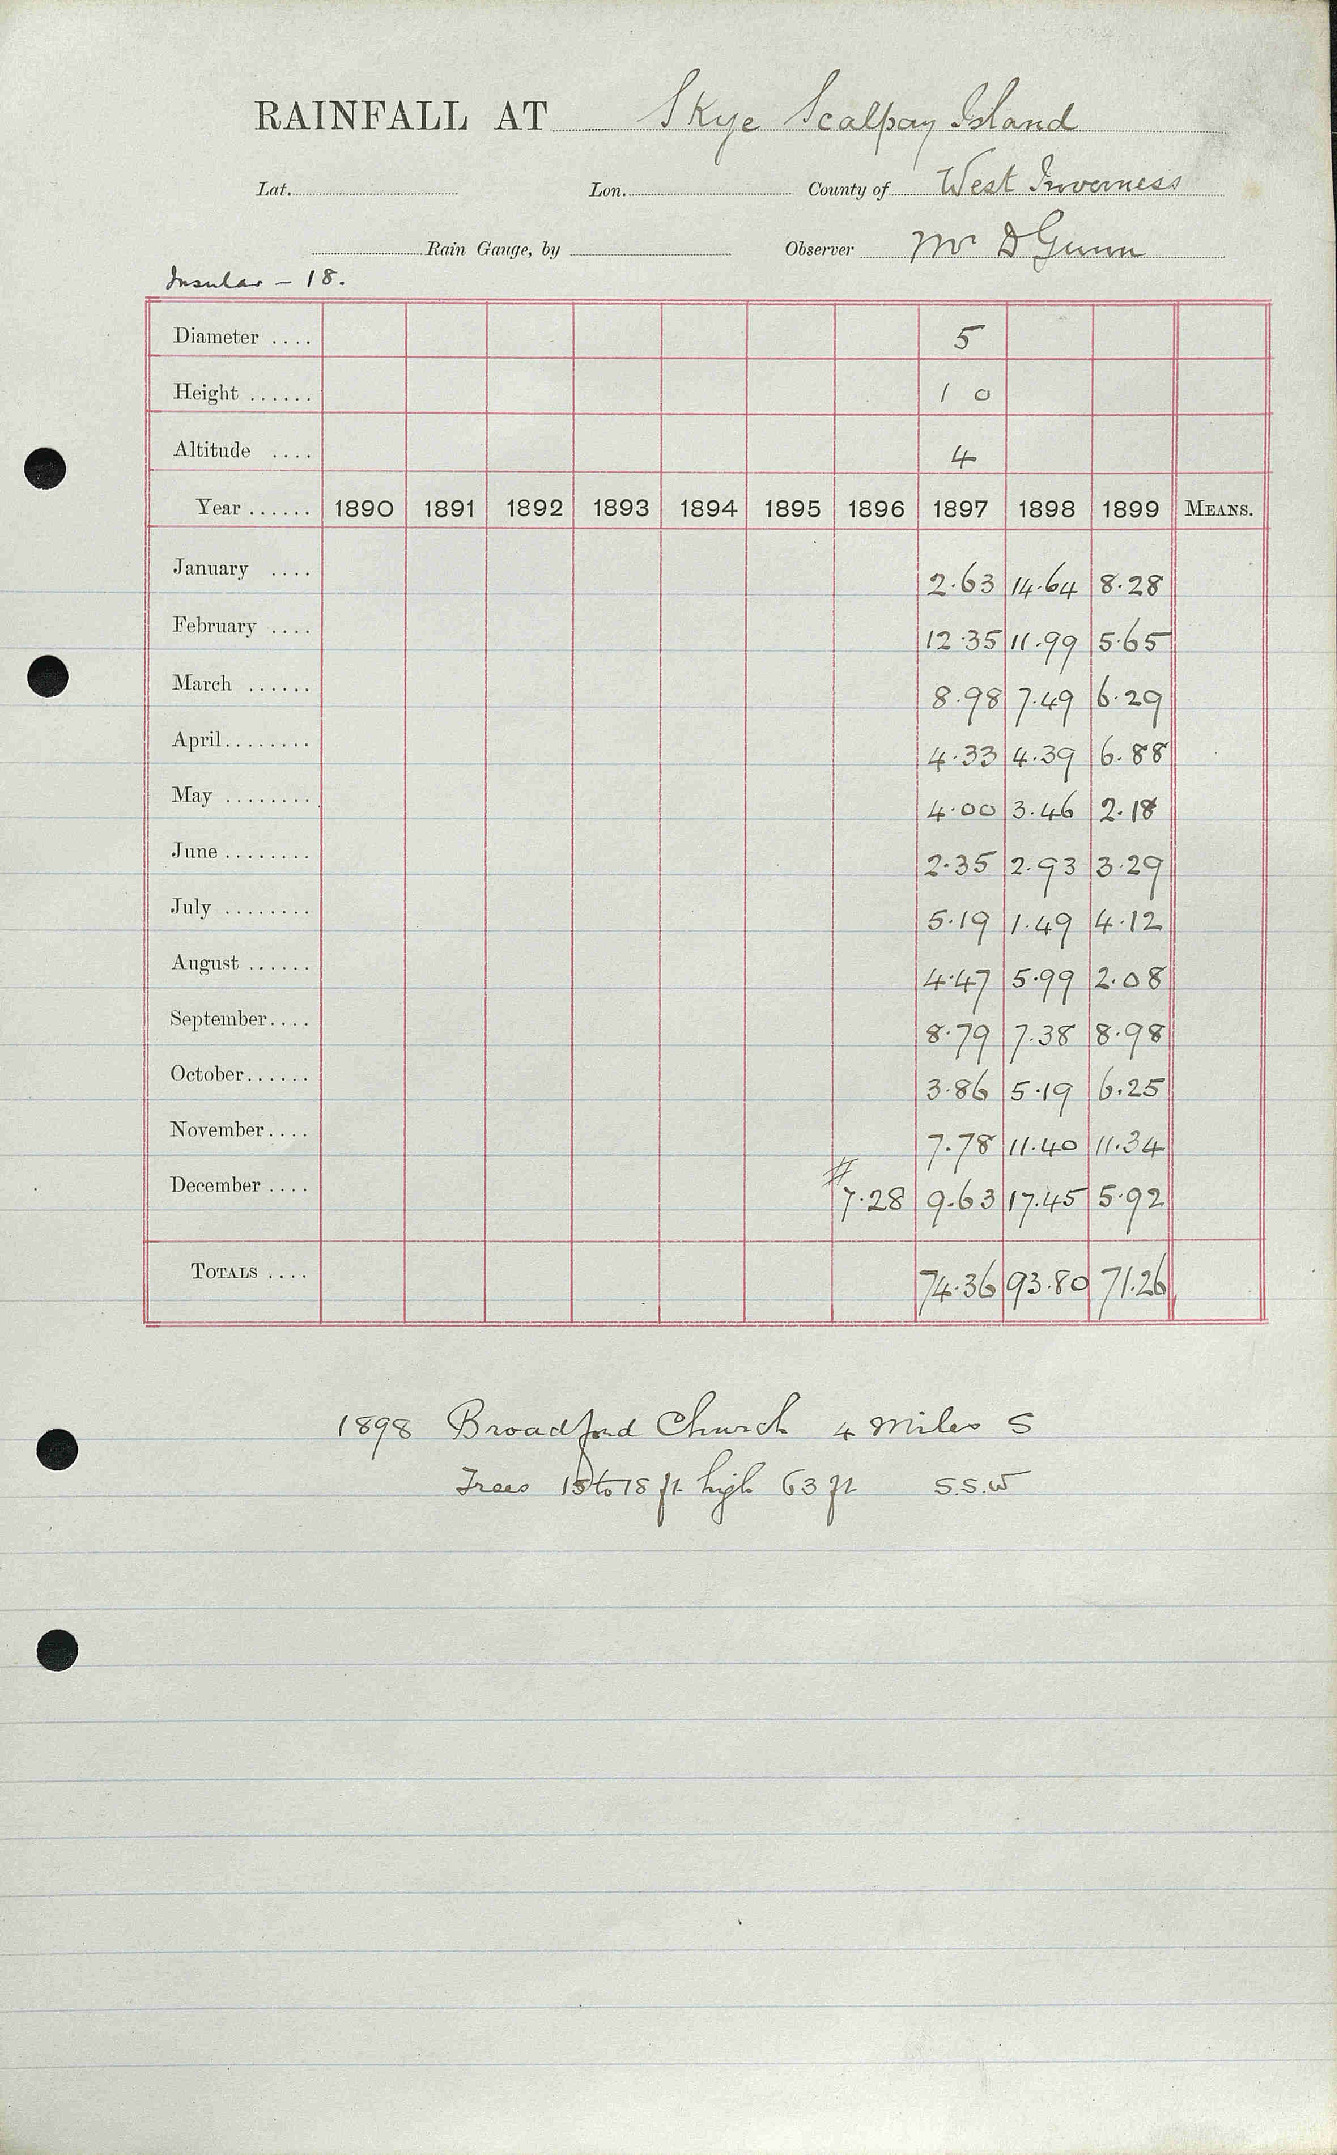 RAINFALL AT Skye Scalpay Island
Lat. Lon. County of West Inverness
Rain Gauge, by Observer Mr D Gunn
Insular - 18.
Diameter .... 5
Height ...... 1 0
Altitude .... 4
Year ...... 1890 1891 1892 1893 1894 1895 1896 1897 1898 1899 MEANS.
January .... 2.63 14.64 8.28
February .... 12.35 11.99 5.65
March ...... 8.98 7.49 6.29
April........ 4.33 4.39 6.88
May ........ 4.00 3.46 2.18
June ........ 2.35 2.93 3.29
July ........ 5.19 1.49 4.12
August ...... 4.47 5.99 2.08
September.... 8.79 7.38 8.98
October...... 3.86 5.19 6.25
November.... 7.78 11.40 11.34
December .... #7.28 9.63 17.45 5.92
TOTALS .... 74.36 93.80 71.26
1898 Broadford Church 4 miles S
Trees 15 to 18 ft high 63 ft S.S.W